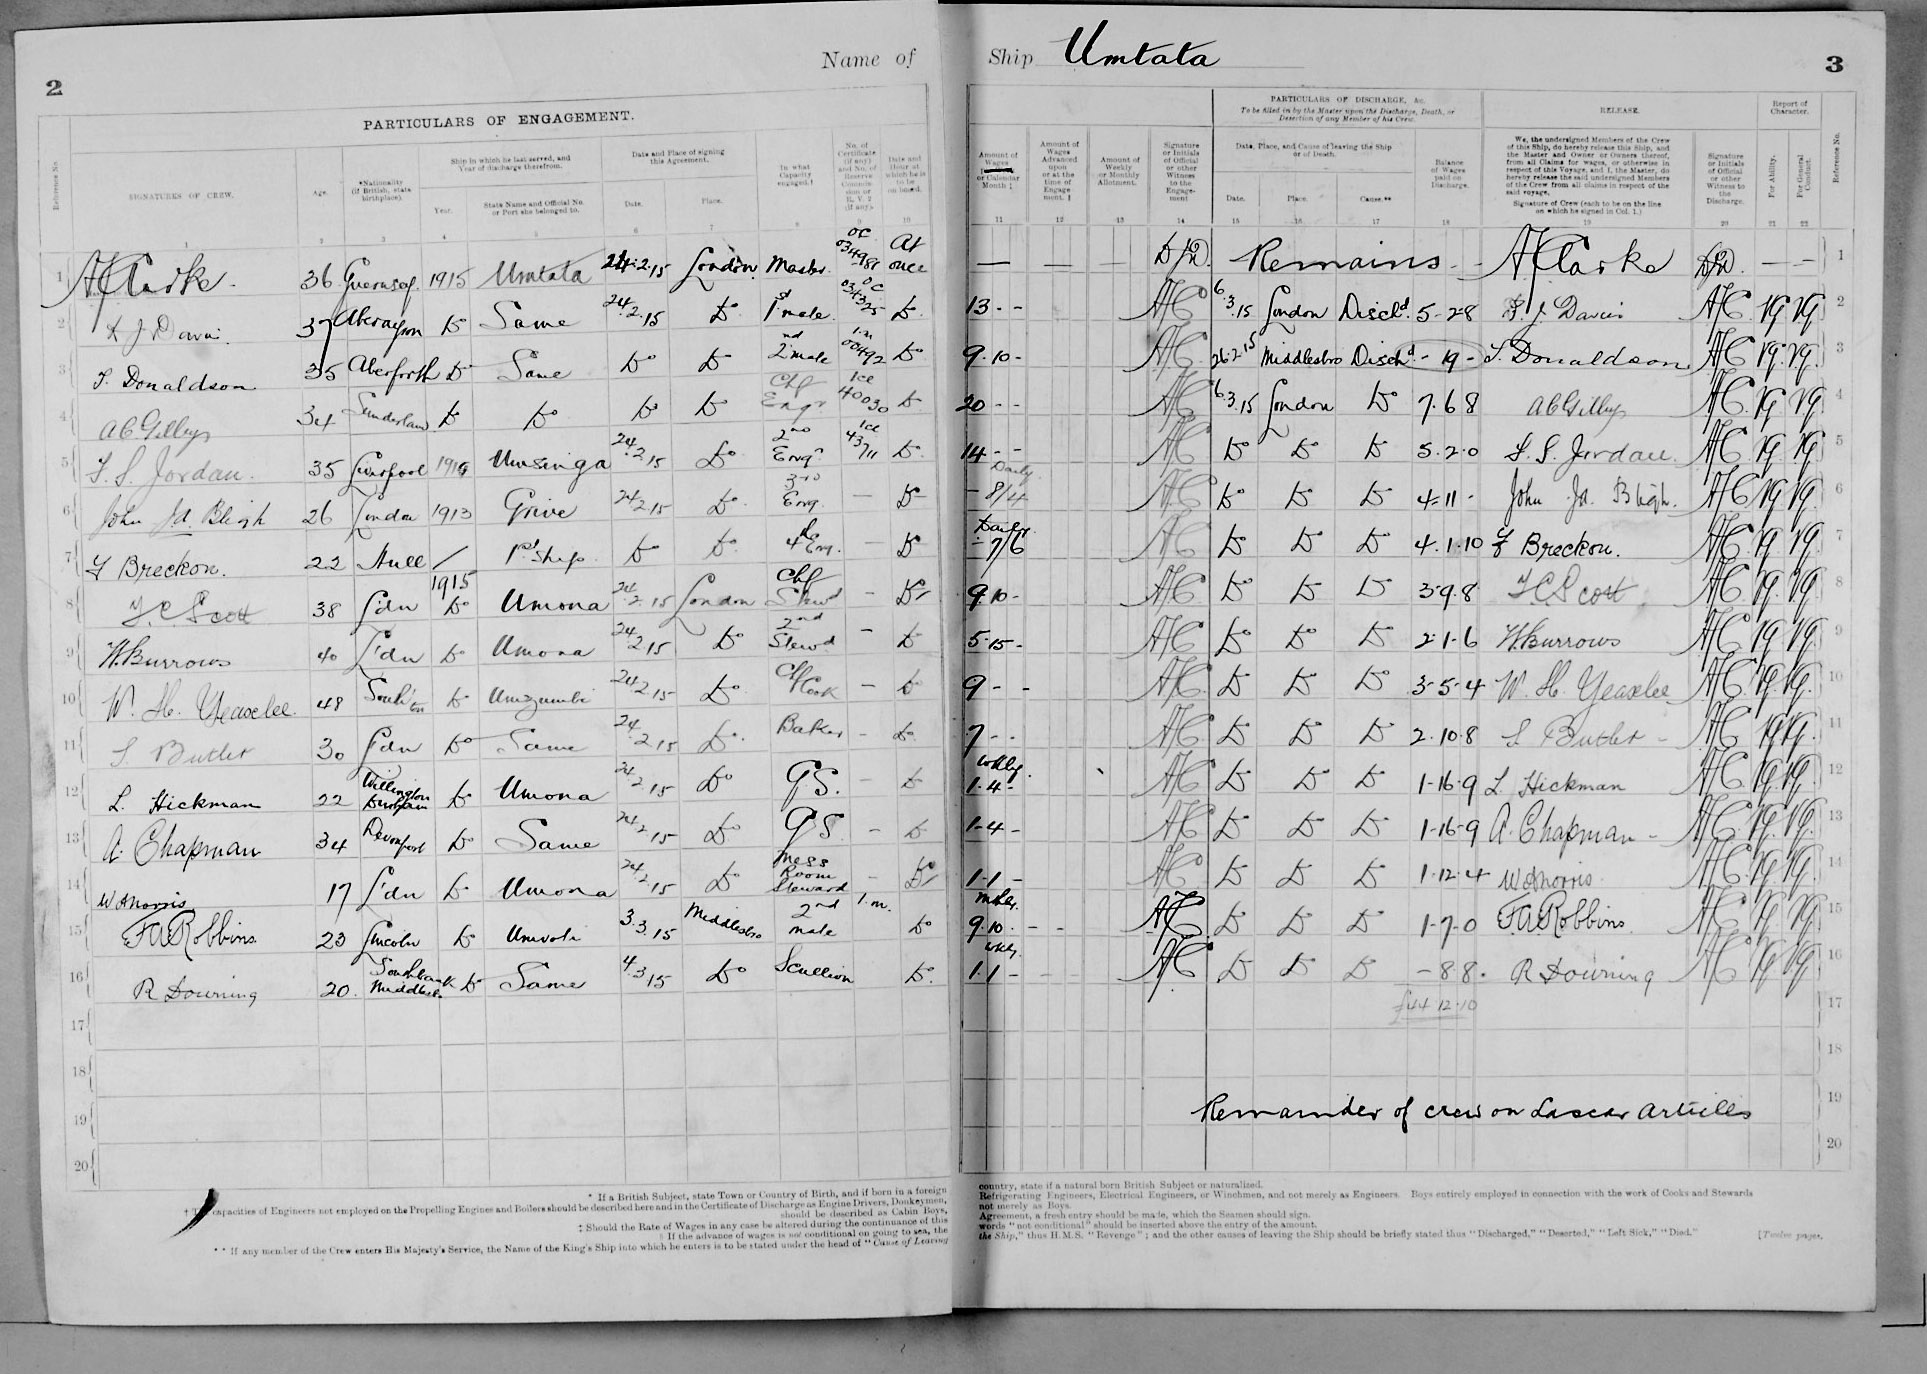 2
Name of
Ship Umtata
3
PARTICULARS OF ENGAGEMENT.
PARTICULARS OF DISCHARGE, &c.
To be filled in by the Master upon the Discharge, Death, or Desertion of any Member of his Crew.
RELEASE.
Report of Character.
Reference No.
SIGNATURES OF CREW.
Age.
*Nationality (if British, state birthplace).
Ship in which he last served, and Year of discharge therefrom.
Year.
State Name and Official No. or Port she belonged to.
Date and Place of signing this Agreement.
Date.
Place.
In what Capacity engaged.†
No. of Certificate (if any) and No. of Reserve Commission or R.V.2 (if any).
Date and Hour at which he is to be on board.
Amount of Wages or Calendar Month ‡
Amount of Wages Advanced upon or at the time of Engagement. ‡
Amount of Weekly or Monthly Allotment.
Signature or Initials of Official or other Witness to the Engagement
Date, Place, and Cause of leaving the Ship or of Death.
Date.
Place.
Cause.**
Balance of Wages paid on Discharge.
We, the undersigned Members of the Crew of this Ship, do hereby release this Ship, and the Master and Owner or Owners thereof, from all Claims for wages, or otherwise in respect of this Voyage, and I, the Master, do hereby release the said undersigned Members of the Crew from all claims in respect of the said voyage.
Signature of Crew (each to be on the line on which he signed in Col. 1.)
Signature or Initials of Official or other Witness to Discharge.
For Ability.
For General Conduct.
Reference No.
1 2 3 4 5 6 7 8 9 10 11 12 13 14 15 16 17 18 19 20 21 22
1 A Clarke 36 Guernsey 1915 Umtata 24.2.15 London Master OC 034981 At once — — — Remains A Clarke — — 1
2 D J Davies 37 Aberayron Do Same 24.2.15 Do 1st mate OC 034325 Do 13 - - AC 6.3.15 London Dischd. 5-2-8 D. J. Davies AC VG VG 2
3 T. Donaldson 35 Do Same Do Do 2nd mate 1.m 00492 Do 9.10 - AC 26.2.15 Middlesbro Dischd - 19 - T. Donaldson AC VG VG 3
4 34 Sunderland Do Do Do Do Chf Engr 1ce 40030 Do 20 - - AC 6.3.15 London Do 7.6.8 AC VG VG 4
5 Jordan 35 Liverpool Umsinga 24.2.15 Do 2nd Engr 1ce 43711 Do 14 - - AC Do Do Do 5.2.0 Jordan AC VG VG 5
6 John Jd. Bleigh 26 London 1913 Grive 24.2.15 Do 3rd Eng. — Do Daily - 8/4 AC Do Do Do 4-11 - John Jd. Bleigh. AC VG VG 6
7 F Breckon. 22 Hull / 1st Ship Do Do 4th Eng. — Do Daily - 7/6 AC Do Do Do 4.1.10 F Breckon. AC VG VG 7
8 Scott 38 Ldn 1915 Do Umona 24.2.15 London Chf Stewd — Do 9.10 - AC Do Do Do 3.9.8 Scott AC VG VG 8
9 W. Burrows 40 Ldn Do Umona 24.2.15 Do 2nd Stewd — Do 5.15 - AC Do Do Do 2.1.6 W. Burrows AC VG VG 9
10 W. H. Yeaxlee 48 Southton Do Umzumbi 24.2.15 Do Chf Cook — Do 9 - - AC Do Do Do 3-5-4 W. H. Yeaxlee AC VG VG 10
11 Butler 30 Ldn Do Same 24.2.15 Do Baker — Do 7 - - AC Do Do Do 2.10.8 Butler AC VG VG 11
12 L. Hickman 22 Willington Durham Do Umona 24.2.15 Do GS. — Do wkly. 1.4 - AC Do Do Do 1-16-9 L Hickman AC VG VG 12
13 A. Chapman 34 Devonport Do Same 24.2.15 Do GS. — Do 1-4 - AC Do Do Do 1-16-9 A. Chapman AC VG VG 13
14 W A Norris 17 Ldn Do Umona 24.2.15 Do Mess Room Steward — Do 1-1 - AC Do Do Do 1-12-4 W A Norris AC VG VG 14
15 F A Robbins 23 Lincoln Do Umvoti 3.3.15 Middlesbro 2nd mate 1.m. Do mthly. 9.10. - - AC Do Do Do 1-7-0 F. A Robbins AC VG VG 15
16 R Downing 20 Southbank Middlesbro Do Same 4.3.15 Do Scullion Do. wkly. 1.1 - - - AC Do Do Do - 8 8. R Downing AC VG VG 16
17 £44 12.10 17
18 18
19 Remainder of crew on Lascar Articles 19
20 20
* If a British Subject, state Town or Country of Birth, and if born in a foreign country, state if a natural born British Subject or naturalized.
† capacities of Engineers not employed on the Propelling Engines and Boilers should be described here and in the Certificate of Discharge as Engine Drivers, Donkeymen, Refrigerating Engineers, Electrical Engineers, or Winchmen, and not merely as Engineers. Boys entirely employed in connection with the work of Cooks and Stewards
should be described as Cabin Boys, not merely as Boys.
‡ Should the Rate of Wages in any case be altered during the continuance of this Agreement, a fresh entry should be made, which the Seamen should sign.
If the advance of wages is not conditional on going to sea, the words "not conditional" should be inserted above the entry of the amount.
** If any member of the Crew enters His Majesty's Service, the Name of the King's Ship into which he enters is to be stated under the head of "Cause of Leaving the Ship," thus H.M.S. "Revenge"; and the other causes of leaving the Ship should be briefly stated thus "Discharged," "Deserted," "Left Sick," "Died."
[Twelve pages.